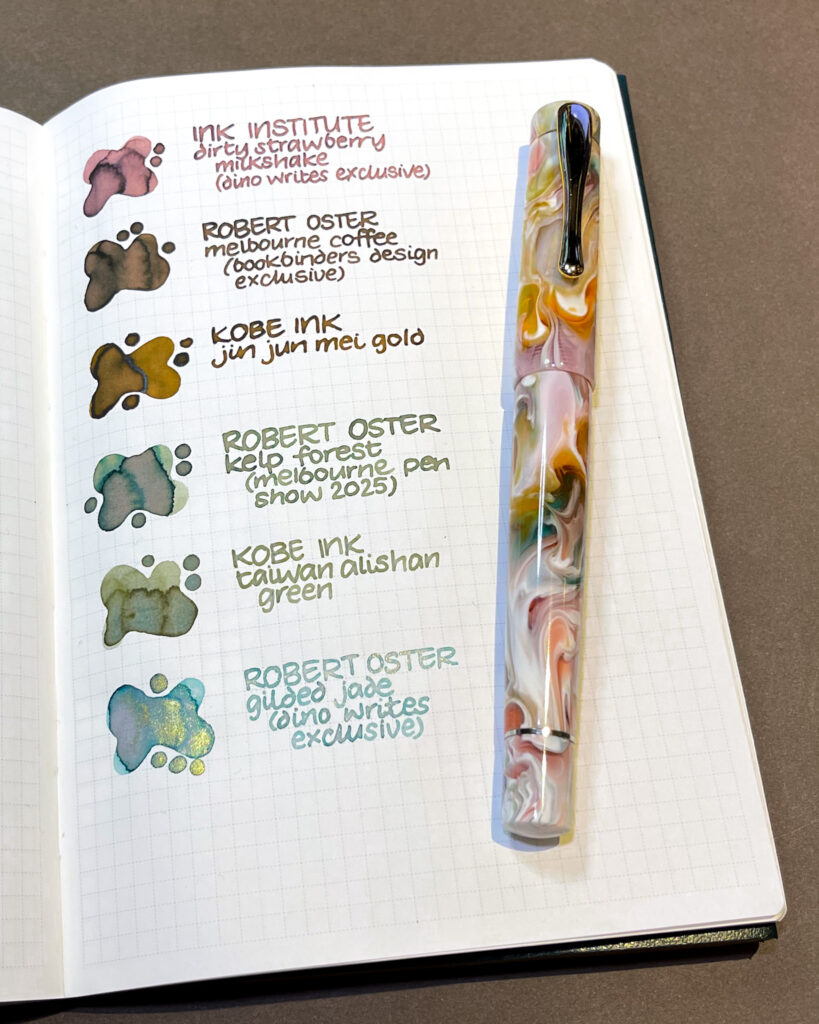 INK INSTITUTE
dirty strawberry
milkshake
(dino writes exclusive)
ROBERT OSTER
melbourne coffee
(bookbinders design
exclusive)
KOBE INK
jin jun mei gold
ROBERT OSTER
kelp forest
(melbourne pen
show 2025)
KOBE INK
taiwan alishan
green
ROBERT OSTER
gilded jade
(dino writes
exclusive)